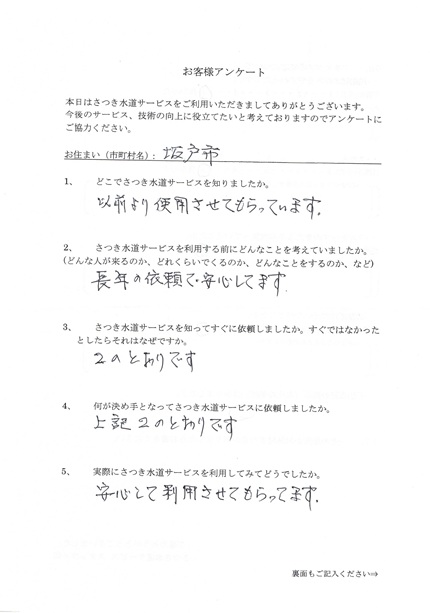 お客様アンケート
本日はさつき水道サービスをご利用いただきましてありがとうございます。
今後のサービス、技術の向上に役立てたいと考えておりますのでアンケートに
ご協力ください。
お住まい（市町村名）: 坂戸市
1、 どこでさつき水道サービスを知りましたか。
以前より使用させてもらっています.
2、 さつき水道サービスを利用する前にどんなことを考えていましたか。
(どんな人が来るのか、どれくらいでくるのか、どんなことをするのか、など)
長年の依頼で安心してます.
3、 さつき水道サービスを知ってすぐに依頼しましたか。すぐではなかった
としたらそれはなぜですか。
2のとおりです
4、 何が決め手となってさつき水道サービスに依頼しましたか。
上記2のとおりです
5、 実際にさつき水道サービスを利用してみてどうでしたか。
安心して利用させてもらってます.
裏面もご記入ください⇒